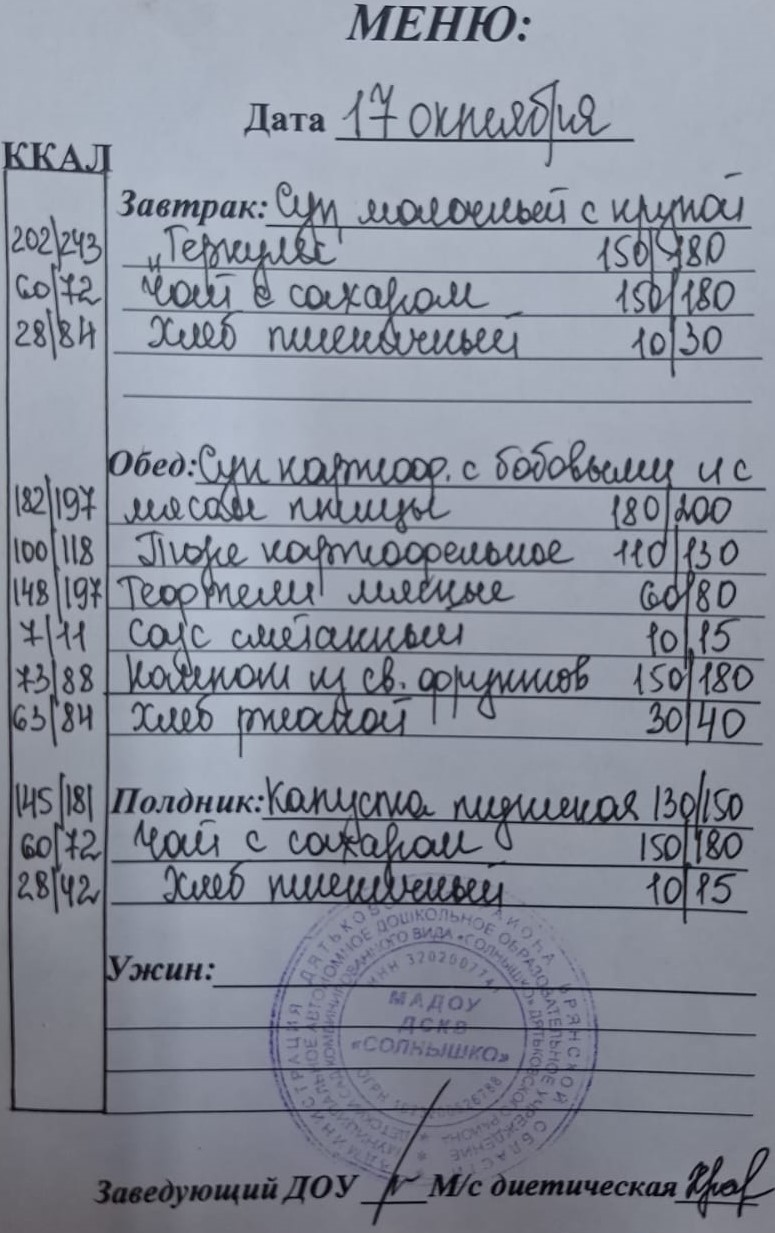 МЕНЮ:
Дата 17 октября
ККАЛ
Завтрак: Суп молочный с крупой
202/243 „Геркулес" 150/180
60/72 Чай с сахаром 150/180
28/84 Хлеб пшеничный 10/30
Обед: Суп картоф. с бобовыми и с
182/197 мясом птицы 180/200
100/118 Пюре картофельное 110/130
148/197 Тефтели мясные 60/80
7/11 Соус сметанный 10/15
73/88 Компот из св. фруктов 150/180
63/84 Хлеб ржаной 30/40
145/181 Полдник: Капуста тушеная 130/150
60/72 Чай с сахаром 150/180
28/42 Хлеб пшеничный 10/15
Ужин:
МАДОУ
ДСКВ
«СОЛНЫШКО»
Заведующий ДОУ М/с диетическая